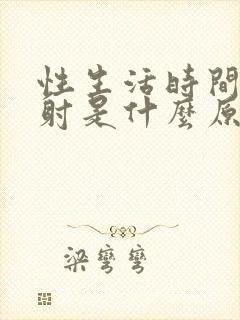 性生活時間
射是什麼原
梁彎彎